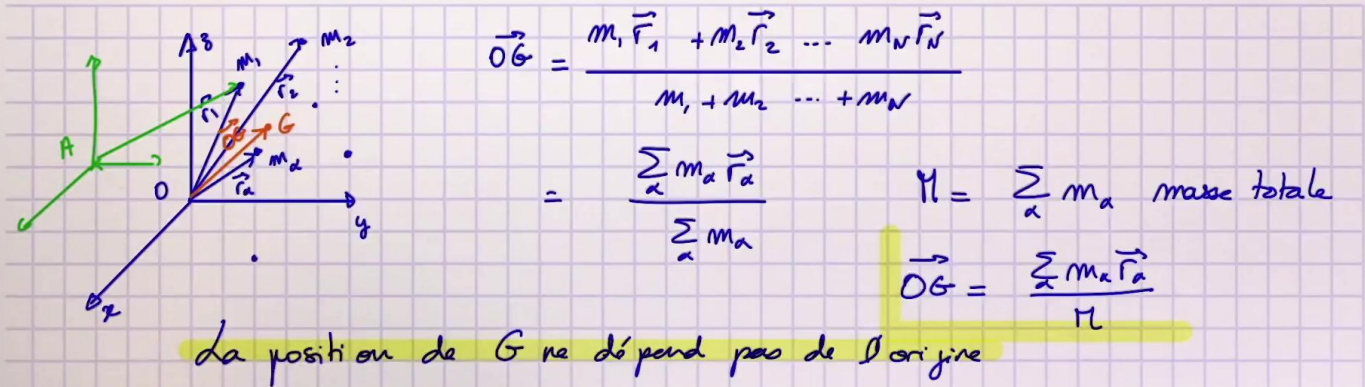 z
m₁
m₂
r⃗₁
r⃗₂
A
O⃗G
G
m_α
O
r⃗_α
y
x
O⃗G = (m₁ r⃗₁ + m₂ r⃗₂ ... m_N r⃗_N) / (m₁ + m₂ ... + m_N)
= (∑_α m_α r⃗_α) / (∑_α m_α)
M = ∑_α m_α masse totale
O⃗G = (∑_α m_α r⃗_α) / M
La position de G ne dépend pas de l'origine